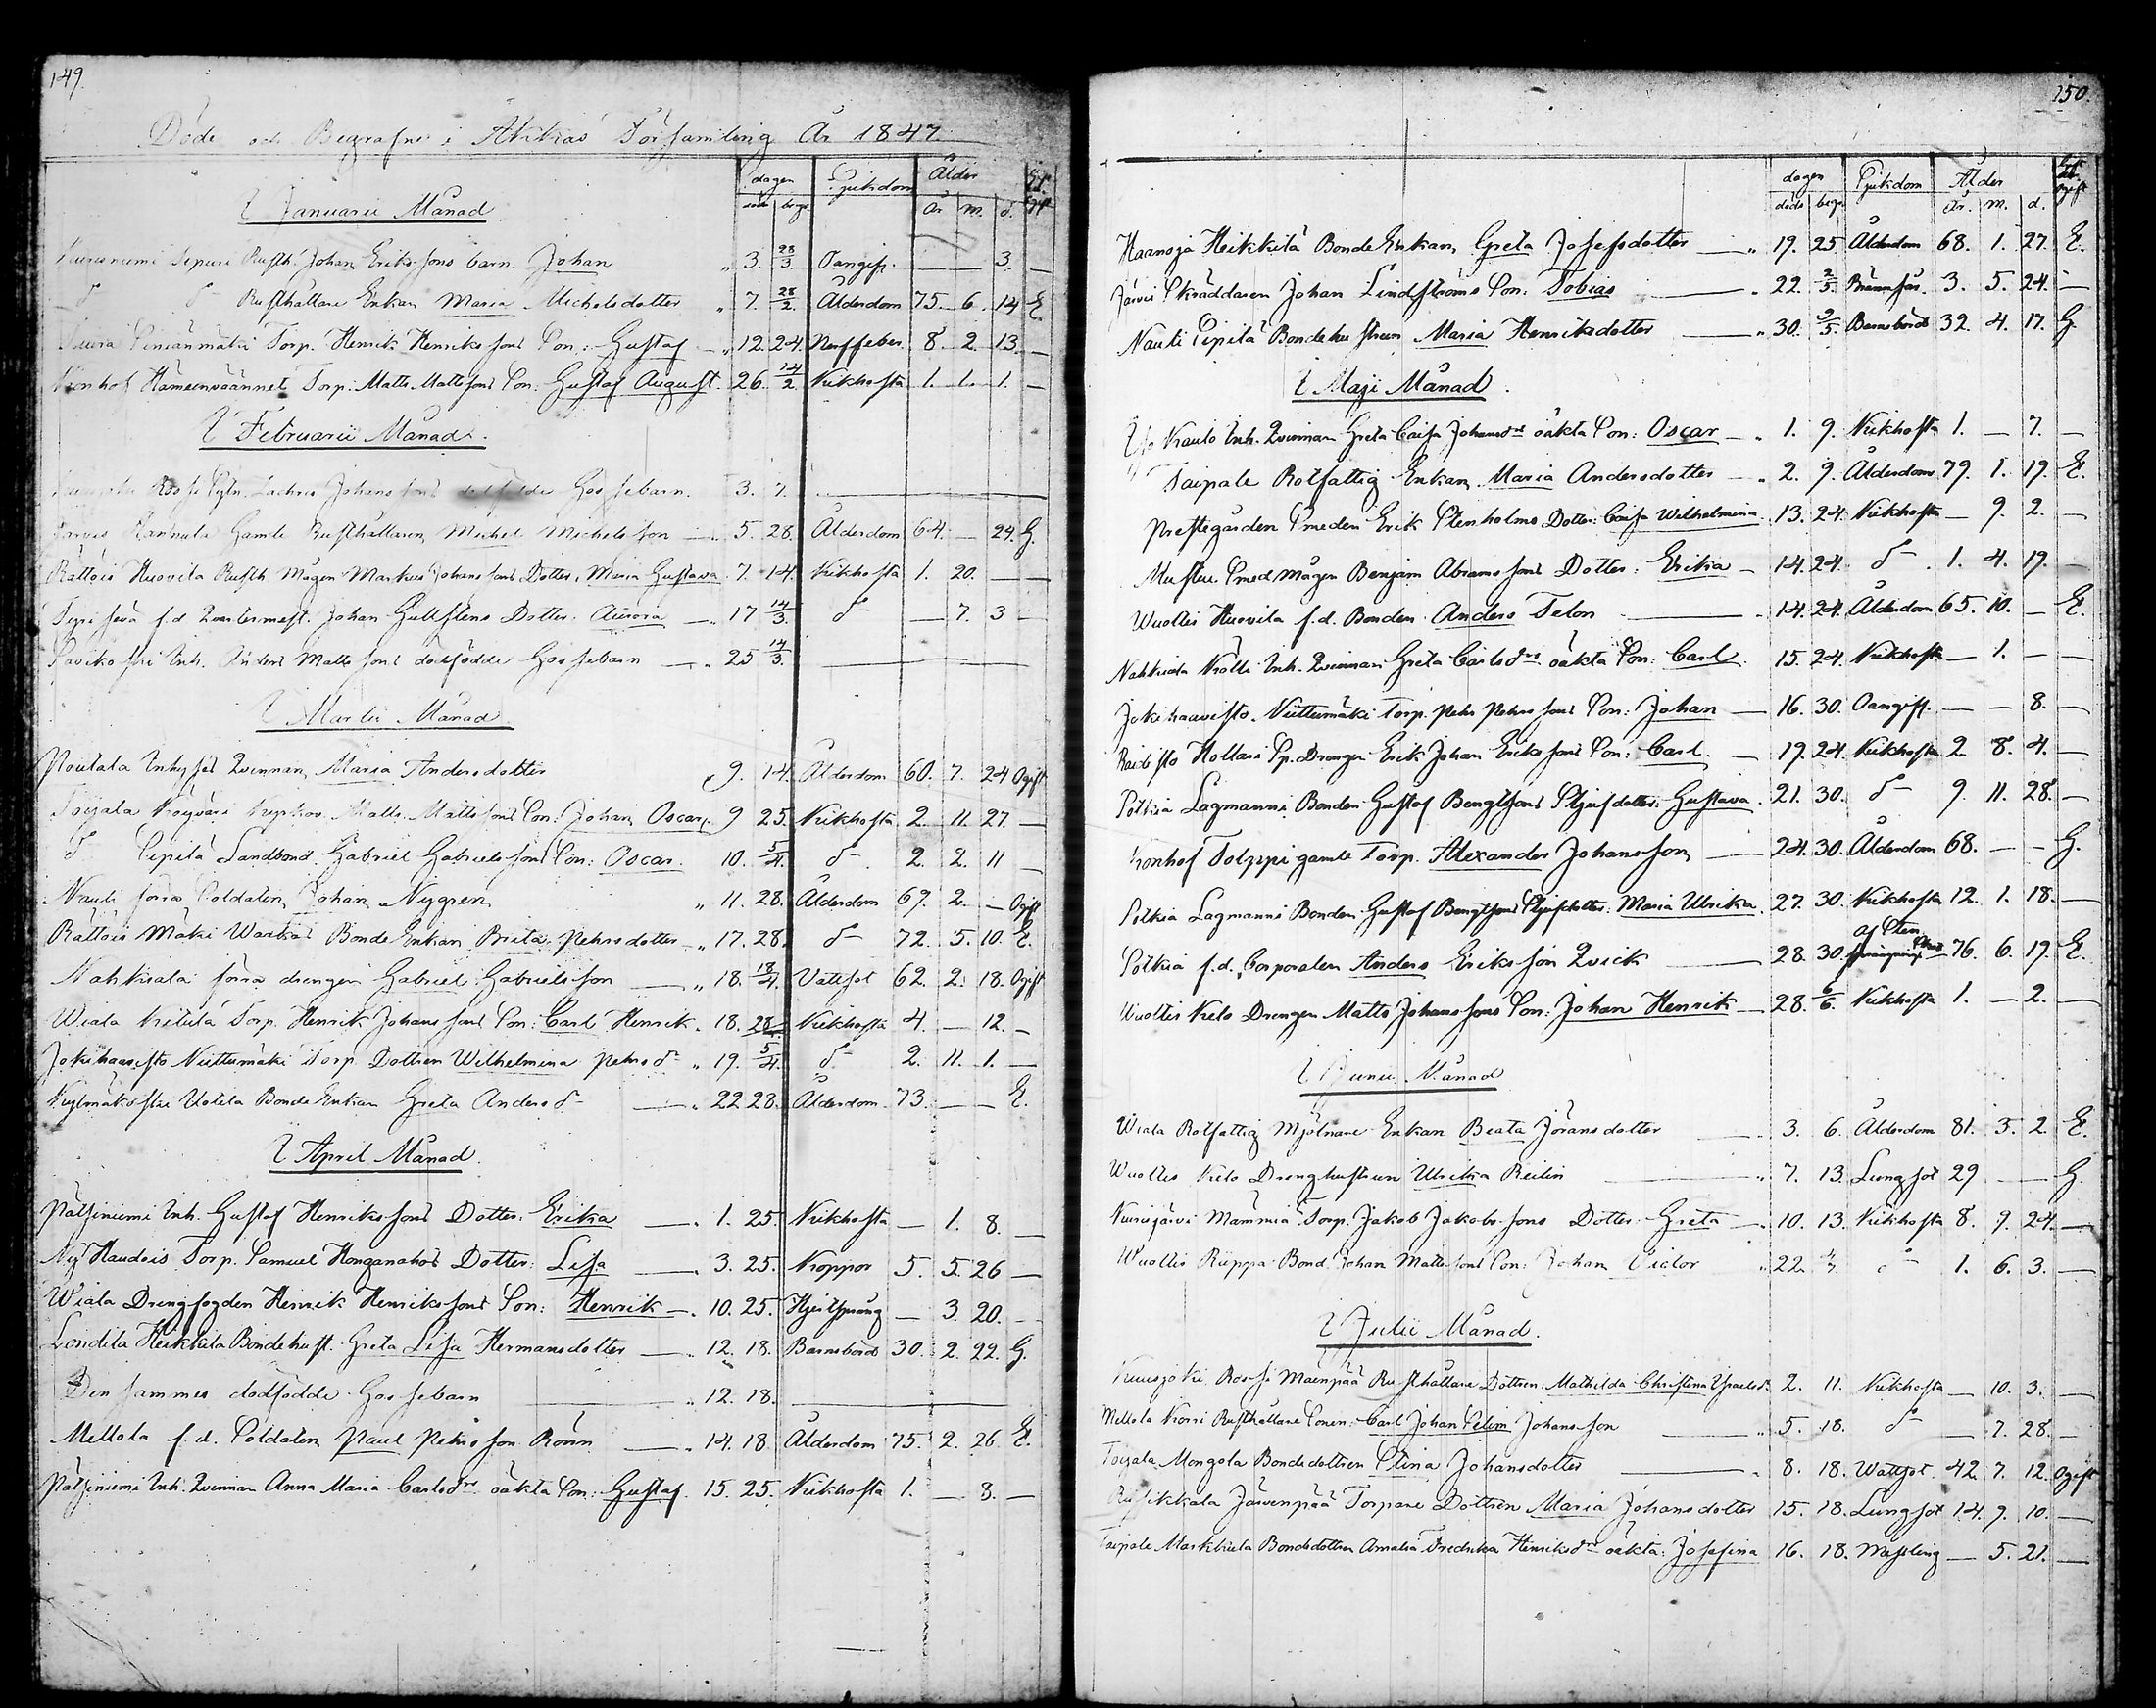 149.
Döde och Begrafne i Akkas Församling År 1847.
dagen Sjukdom Ålder
död begr. År m. d.
I Januarii Månad.
Sipuri Rusth. Johan Eriks sons barn. Johan 3. 28/3. Oangif. — — 3. —
d° d° Rusthållare Enkan Maria Michelsdotter 7. 28/2. Ålderdom 75. 6. 14 E.
Torp. Henrik Henriks sons Son: Gustaf 12. 24. Nerffeber. 8. 2. 13. —
Kronhof Hämeenväännet Torp. Matts Matts sons Son: Gustaf August. 26. 14/2. Kikhosta 1. 1. 1. —
I Februarii Månad.
Zachris Johans sons dödfödde Gossebarn. 3. 7. —
Rannula Gamle Rusthållaren Michel Michels son 5. 28. Ålderdom 64. — 24. G.
Rättois Huovila Rusth. Mågen Markus Johans sons Dotter: Maria Gustava 7. 14. Kikhosta 1. 20. — —
f.d. Qvartermest. Johan Gullstens Dotter: Aurora 17 14/3. d° — 7. 3 —
Savikoski Inh. Anders Matts sons dödfödde Gossebarn 25 14/3. —
I Martii Månad.
Inhyses Qvinnan Maria Andersdotter 9. 14. Ålderdom 60. 7. 24 Ogift
Toijala Matts Matts sons Son: Johan Oscar. 9 25. Kikhosta 2. 11. 27. —
d° Pipilä Landbond. Gabriel Gabriels sons Son: Oscar. 10. 5/4. d° 2. 2. 11
Nauli förra Soldaten Johan Nygren 11. 28. Ålderdom 67. 2. — Ogift
Rättois Mäki Bonde Enkan Brita Pehrsdotter 17. 28. d° 72. 5. 10. E.
Nahkiala förra drengen Gabriel Gabrielsson 18. 18/4. Vattsot 62. 2. 18. Ogift
Wiala Torp. Henrik Johans sons Son: Carl Henrik. 18. 28. Kikhosta 4. — 12. —
Jokihaavisto Niittumäki Torp. Dottren Wilhelmina Pehrsd. 19. 5/4. d° 2. 11. 1. —
Kylmäkoski Uotila Bonde Enkan Greta Andersd. 22 28. Ålderdom. 73. — — E.
I April Månad.
Pätsiniemi Inh. Gustaf Henriks sons Dotter: Erika 1. 25. Kikhosta — 1. 8. —
Ny Haudois Torp. Samuel Honganahos Dotter: Lisa 3. 25. Koppor 5. 5. 26 —
Wiala Drengfogden Henrik Henriks sons Son: Henrik 10. 25. — 3 20. —
Heikkilä Bondehust. Greta Lisa Hermansdotter 12. 18. Barnsbörd 30. 2. 22. G.
Den sammes dödfödde Gossebarn 12. 18. —
Mellola f.d. Soldaten Paul Pehrs son Rönn 14. 18. Ålderdom 75. 2. 26 E.
Pätsiniemi Inh. Qvinnan Anna Maria Carlsdrs oäkta Son: Gustaf. 15. 25. Kikhosta 1. — 8. —
150.
dagen Sjukdom Ålder
döde begr. År. m. d.
Heikkilä Bonde Enkan Greta Josefsdotter 19. 25 Ålderdom 68. 1. 27. E.
Skräddaren Johan Lindströms Son: Tobias 22. 2/5. 3. 5. 24. —
Nauli Pipilä Bondehustrun Maria Henriksdotter 30. 2/5. Barnsbörd 32. 4. 17. G.
I Maji Månad.
Inh. Qvinnan Greta Caisa Johansdrs oäkta Son: Oscar 1. 9. Kikhosta 1. — 7. —
Taipale Rotfattig Enkan Maria Andersdotter 2. 9. Ålderdom 79. 1. 19. E.
Prestegården Smeden Erik Stenholms Dotter: Caisa Wilhelmina. 13. 24. Kikhosta — 9. 2. —
Smed Mågen Benjam Abrams sons Dotter: Erika 14. 24. d° 1. 4. 19. —
Wuollis Huovila f.d. Bonden Anders Telon 14. 24. Ålderdom 65. 10. — E.
Nahkiala Inh. Qvinnan Greta Carlsdrs oäkta Son: Carl. 15. 24. Kikhosta — 1. — —
Jokihaavisto. Niittumäki Torp. Pehr Pehrs sons Son: Johan 16. 30. Oangif. — — 8. —
Hollari Sp. Drengen Erik Johan Eriks sons Son: Carl. 19. 24. Kikhosta 2 8. 4. —
Lagmanni Bonden Gustaf Bengtsons Stjufdotter: Gustava 21. 30. d° 9. 11. 28. —
Kronhof Tolppi gamle Torp. Alexander Johansson 24. 30. Ålderdom 68. — — G.
Lagmanni Bonden Gustaf Bengtsons Stjufdotter: Maria Ulrika. 27. 30. Kikhosta 12. 1. 18. —
f.d. Corporalen Anders Eriksson Qvick 28. 30. af Sten 76. 6. 19. E.
Wuollis Kelo Drengen Matts Johans sons Son: Johan Henrik 28. 6/6. Kikhosta 1. — 2. —
I Junii Månad
Wiala Rotfattig Mjölnare Enkan Beata Göransdotter 3. 6. Ålderdom 81. 3. 2. E.
Wuollis Kelo Drenghustrun Ulrika Reilin 7. 13. Lungsot 29 — — G.
Torp. Jakob Jakobs sons Dotter Greta 10. 13. Kikhosta 8. 9. 24. —
Wuollis Riippa Bond. Johan Matts sons Son: Johan Victor 22. 4/7. d° 1. 6. 3. —
I Julii Månad.
Kuusjoki Rossi Mäenpää Rusthållare Dottren: Mathilda Christina 2. 11. Kikhosta — 10. 3. —
Mellola Rusthållare Sonen: Carl Johan Johansson 5. 18. d° — 7. 28. —
Toijala Mongola Bondedottren Stina Johansdotter 8. 18. Wattsot. 42 7. 12. Ogift
Järvenpää Torpare Dottren Maria Johansdotter 15. 18. Lungsot 14. 9. 10. —
Taipale Markkula Bondedottren Amalia Fredrika Henriksdrs oäkta: Josefina 16. 18. Messling — 5. 21. —